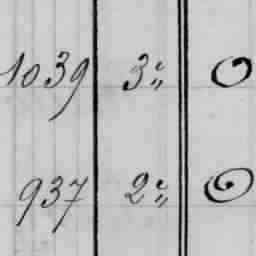 1039 3" 0
937 2" 0